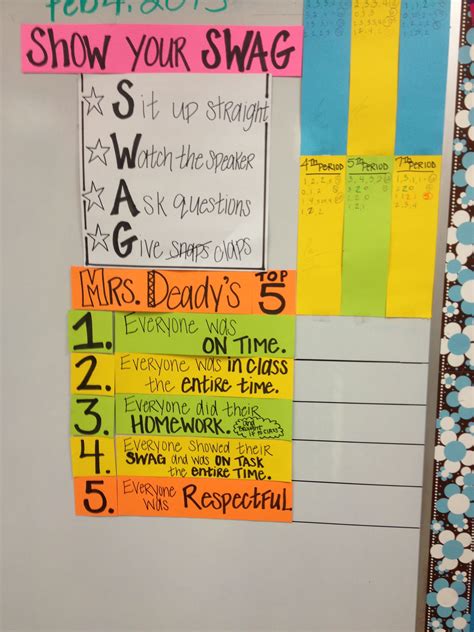 Feb 4, 2013
SHOW YOUR SWAG
Sit up straight
Watch the speaker
Ask questions
Give snaps claps
4TH PERIOD
5TH PERIOD
7TH PERIOD
MRS. DEADY'S TOP 5
1. EVERYONE WAS
ON TIME.
2. EVERYONE WAS IN CLASS
THE ENTIRE TIME.
3. EVERYONE DID THEIR
HOMEWORK. (AND BROUGHT IT TO CLASS)
4. EVERYONE SHOWED THEIR
SWAG AND WAS ON TASK
THE ENTIRE TIME.
5. EVERYONE
WAS RESPECTFUL